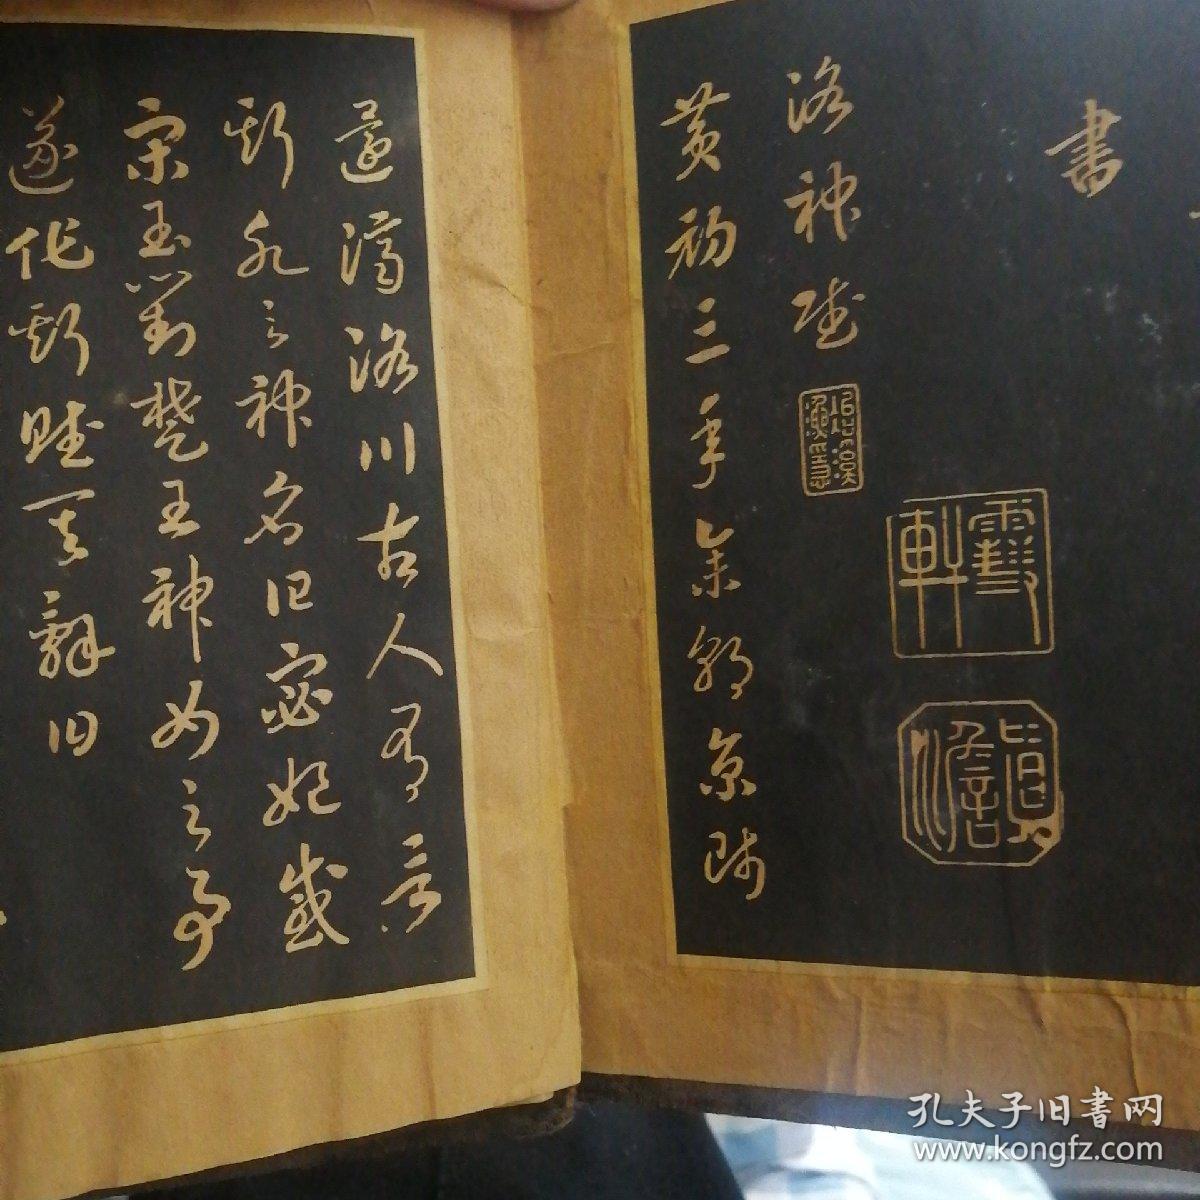 書
洛神賦
黄初三年余朝京師
還濟洛川古人有言
斯水之神名曰宓妃感
宋玉對楚王神女之事
遂作斯賦其辭曰
孔夫子旧书网
www.kongfz.com